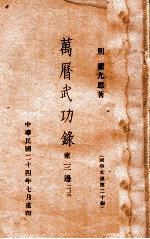 明 瞿九思著
(國學文庫第二十編)
萬曆武功錄 東三邊
中華民國二十四年七月重印